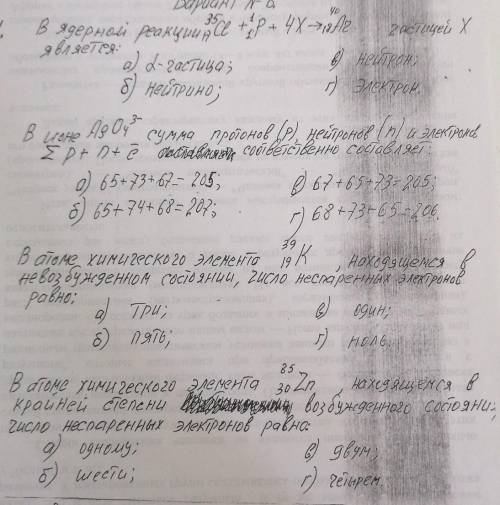 Вариант №
В ядерной реакции ³⁵₁₇Cl + ¹₁P + 4X → ⁴⁰₁₈Ar частицей X
является:
а) α-частица; в) нейтрон;
б) нейтрино; г) электрон.
В ионе AgO₄³⁻ сумма протонов (p), нейтронов (n) и электронов
Σp + n + ē соответственно составляет:
а) 65+73+67=205; в) 67+65+73=205;
б) 65+74+68=207; г) 68+73+65=206.
В атоме химического элемента ³⁹₁₉K, находящемся в
невозбужденном состоянии, число неспаренных электронов
равно:
а) три; в) один;
б) пять; г) ноль.
В атоме химического элемента ⁸⁵₃₀Zn, находящемся в
крайней степени возбужденного состояния,
число неспаренных электронов равна:
а) одному; в) двум;
б) шести; г) четырем.